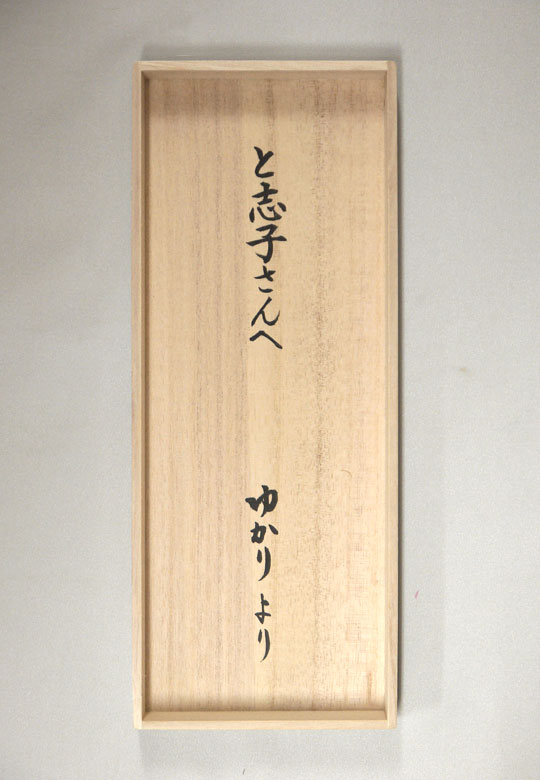 と志子さんへ
ゆかりより